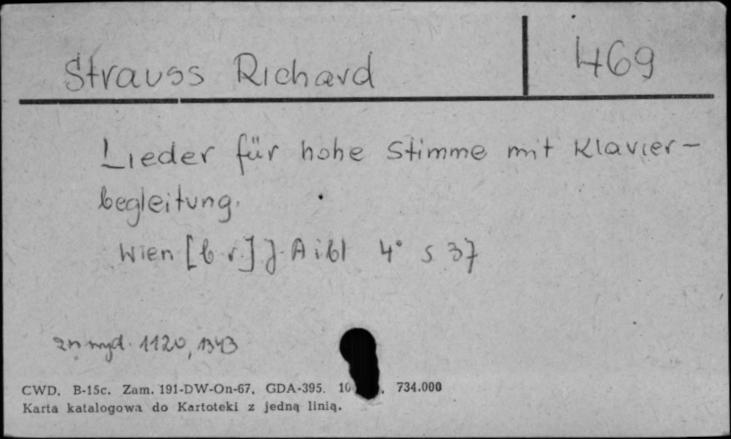 Strauss Richard 469
Lieder für hohe Stimme mit Klavier-
begleitung.
Wien [b r.] J. Aibl 4° s 37
zn wyd. 1120, 1343
CWD. B-15c. Zam. 191-DW-On-67. GDA-395. 10 . 734.000
Karta katalogowa do Kartoteki z jedną linią.